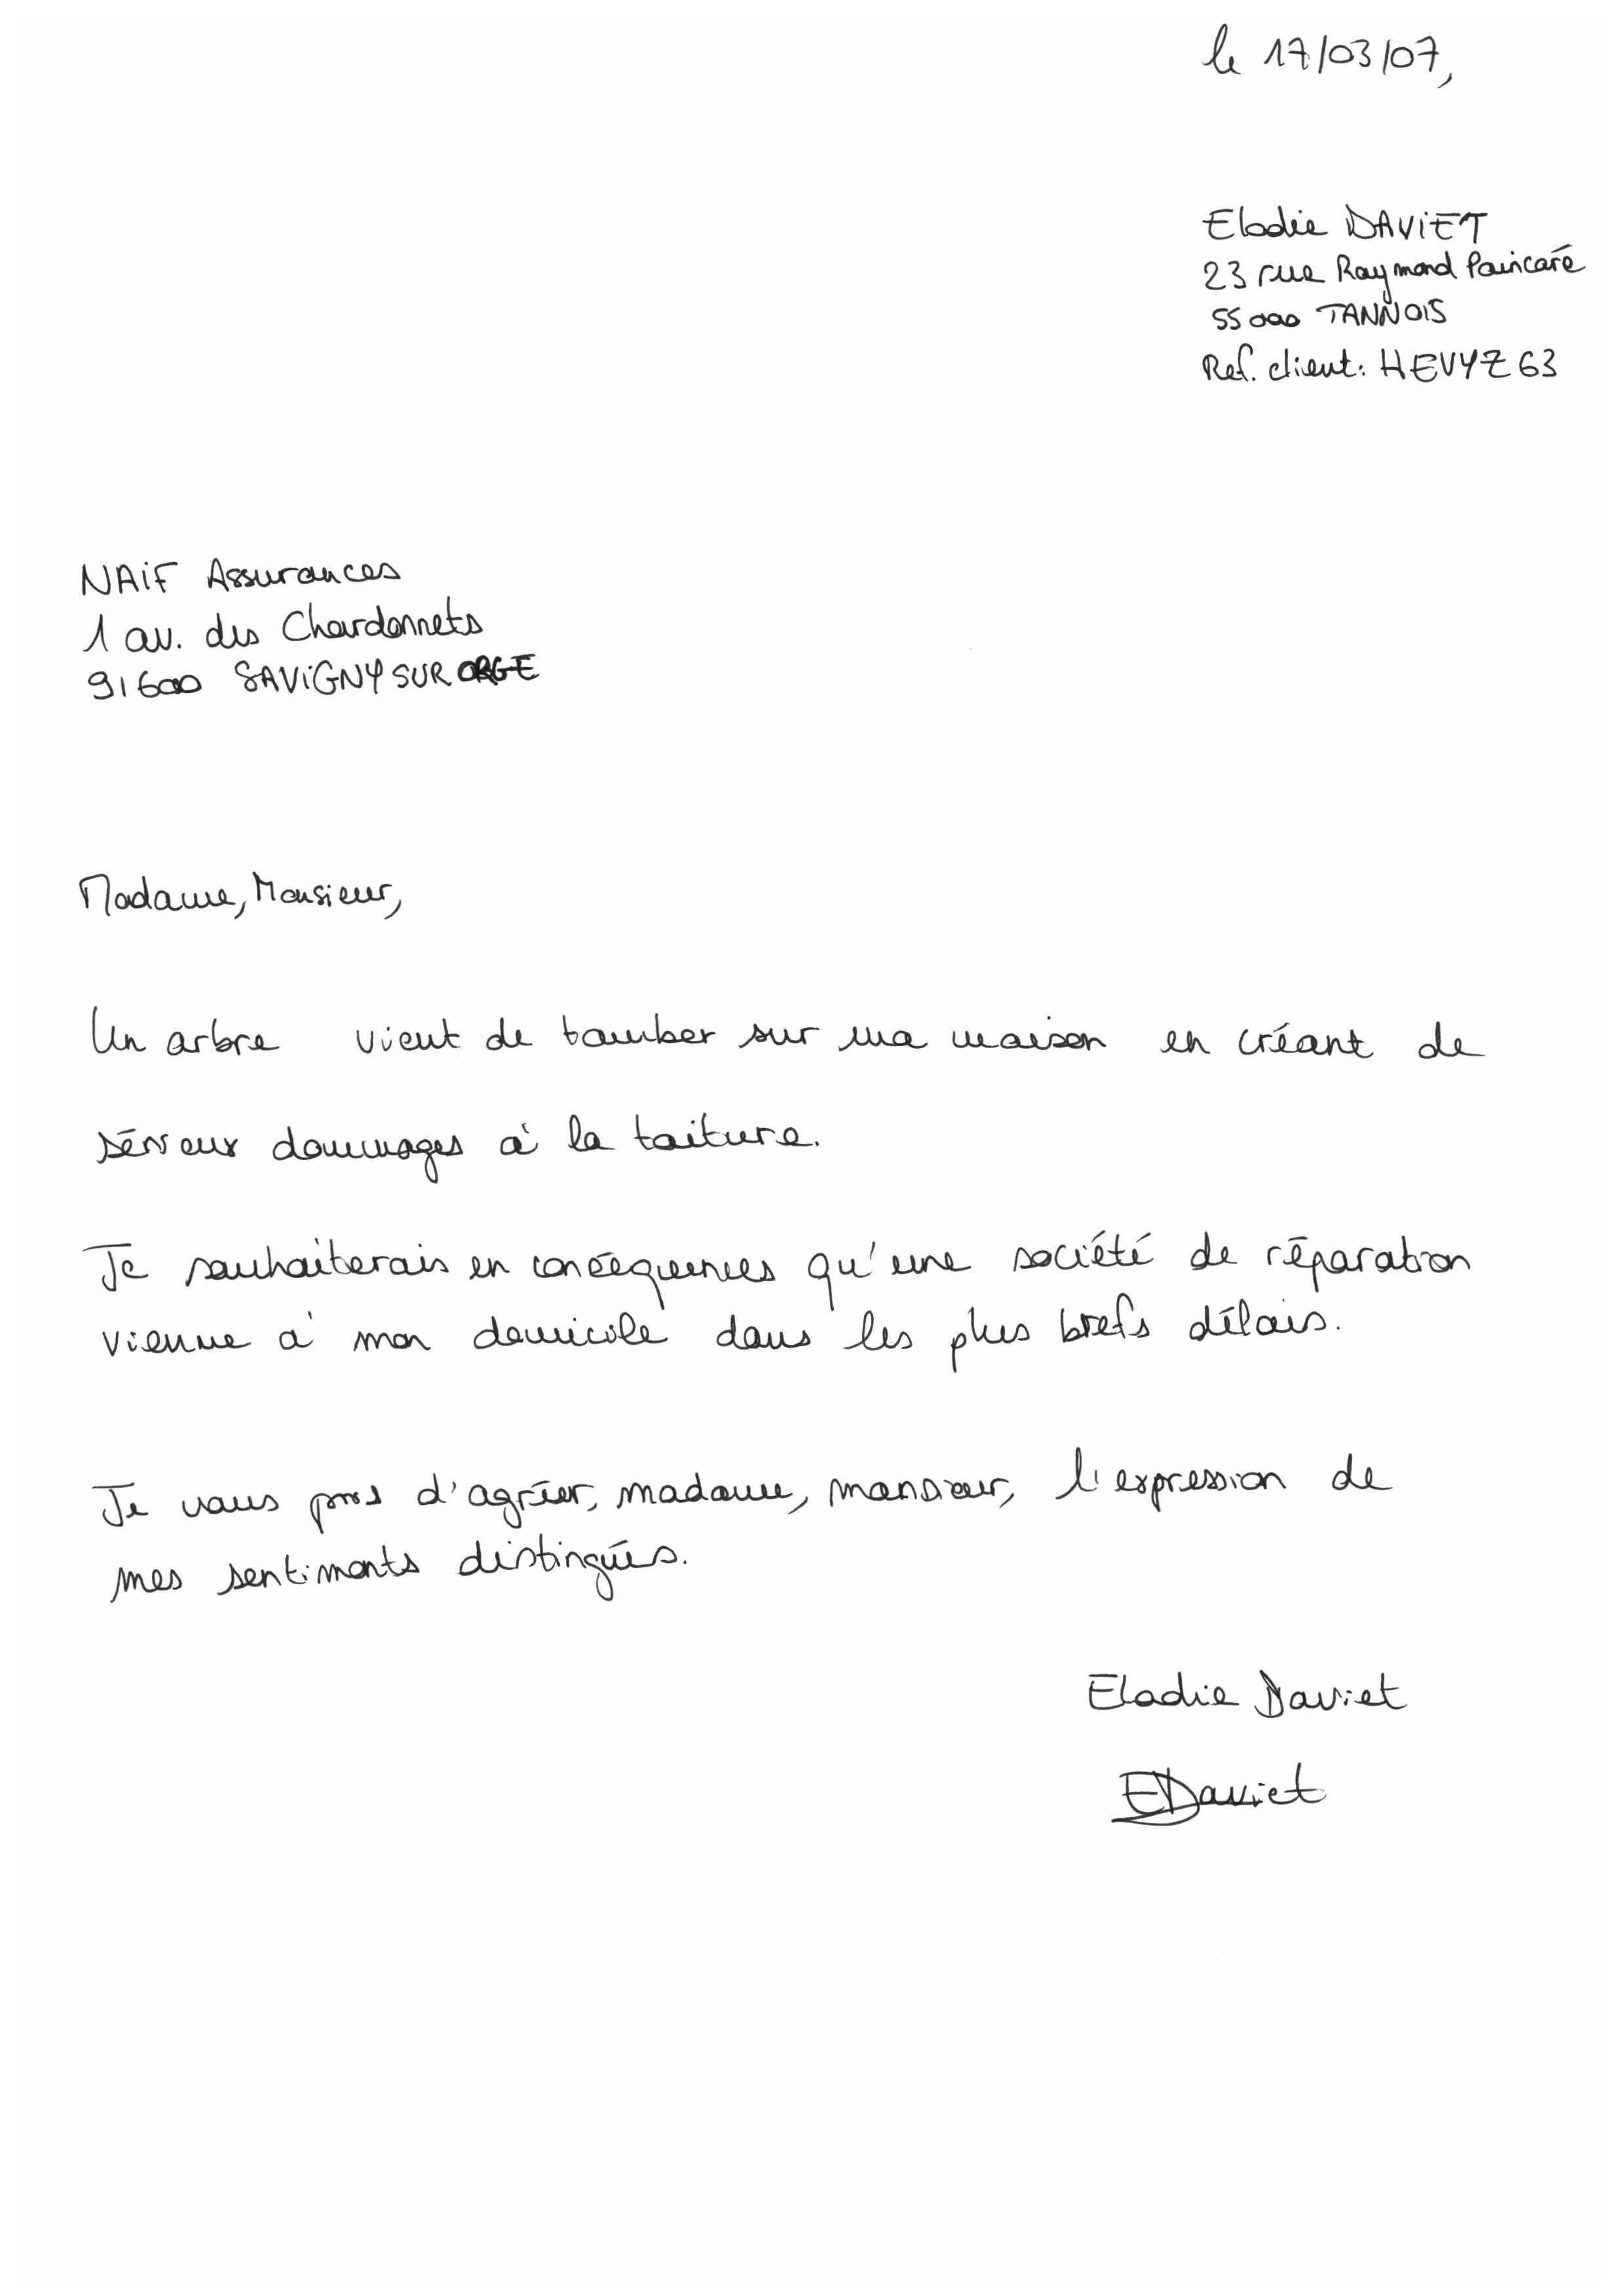 le 17/03/07,
Elodie DAVIET
23 rue Raymond Poincaré
55000 TANNOIS
Ref. client: HEVYZ63
NAIF Assurances
1 av. des Chardonnets
91600 SAVIGNY SUR ORGE
Madame, Monsieur,
Un arbre vient de tomber sur ma maison en créant de
sérieux dommages à la toiture.
Je souhaiterais en conséquences qu'une société de réparation
vienne à mon domicile dans les plus brefs délais.
Je vous pries d'agréer, madame, monsieur, l'expression de
mes sentiments distingués.
Elodie Daviet
EDaviet